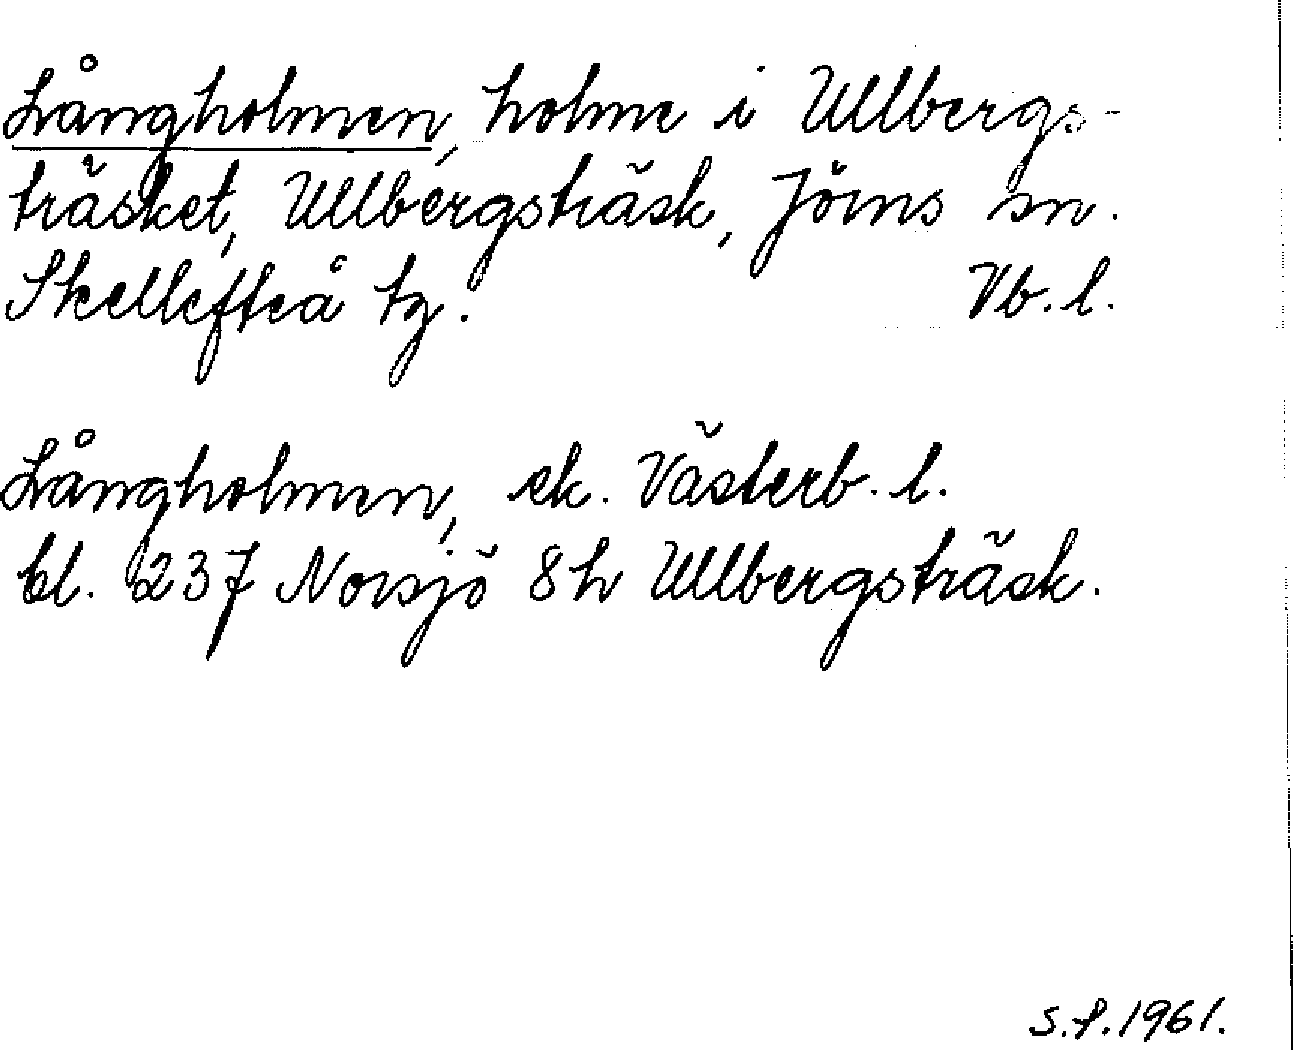 Långholmen, holme i Ullbergs-
träsket, Ullbergsträsk, Jörns sn.
Skellefteå tg. Vb. l.
Långholmen, ek. Västerb. l.
bl. 237 Norsjö 8h Ullbergsträsk.
S.f. 1961.